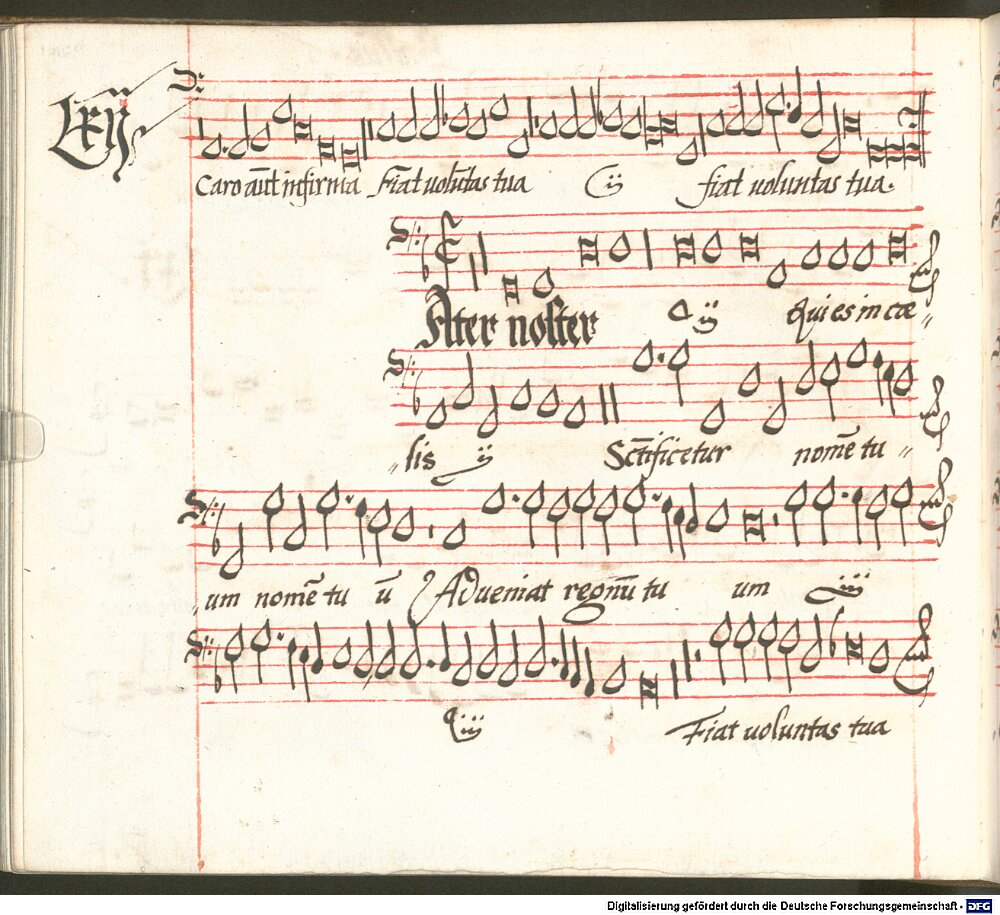 Lxij
Caro aūt infirma Fiat uolūtas tua ij fiat uoluntas tua.
Ater noster ij Qui es in cœ„
„lis ij Sctificetur nomē tu„
„um nomē tu ū Adueniat regnū tu um iij
iij Fiat uoluntas tua
Digitalisierung gefördert durch die Deutsche Forschungsgemeinschaft - DFG